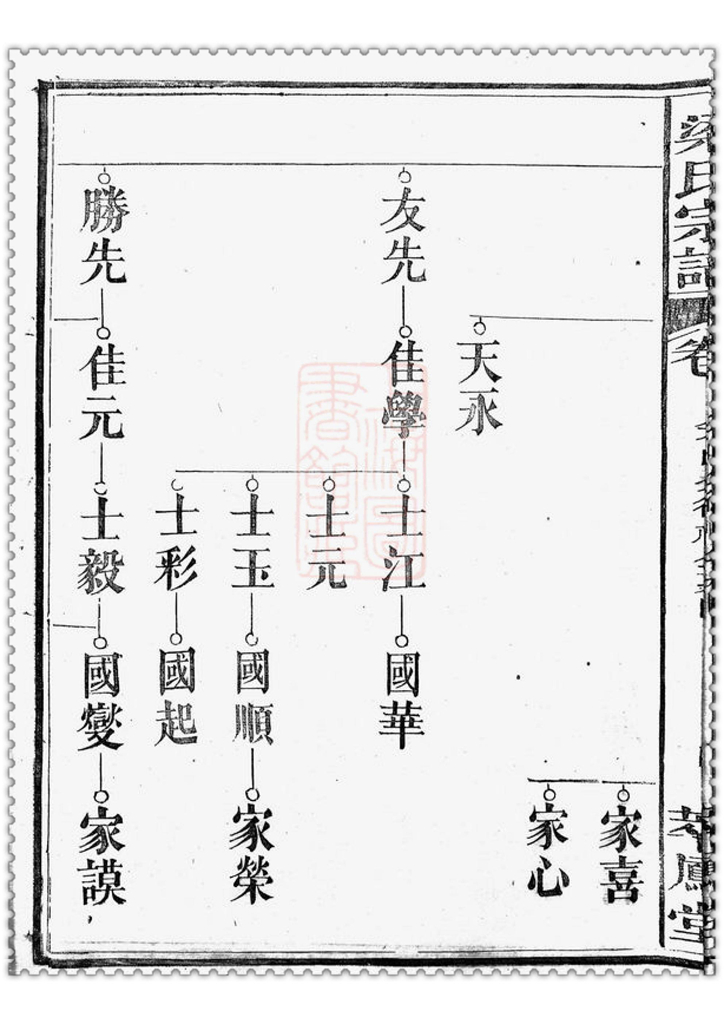 梁氏宗譜
卷
萃鳳堂
家喜
家心
天永
友先
佳學
士江
國華
士元
士玉
國順
家榮
士彩
國起
勝先
佳元
士毅
國燮
家謨